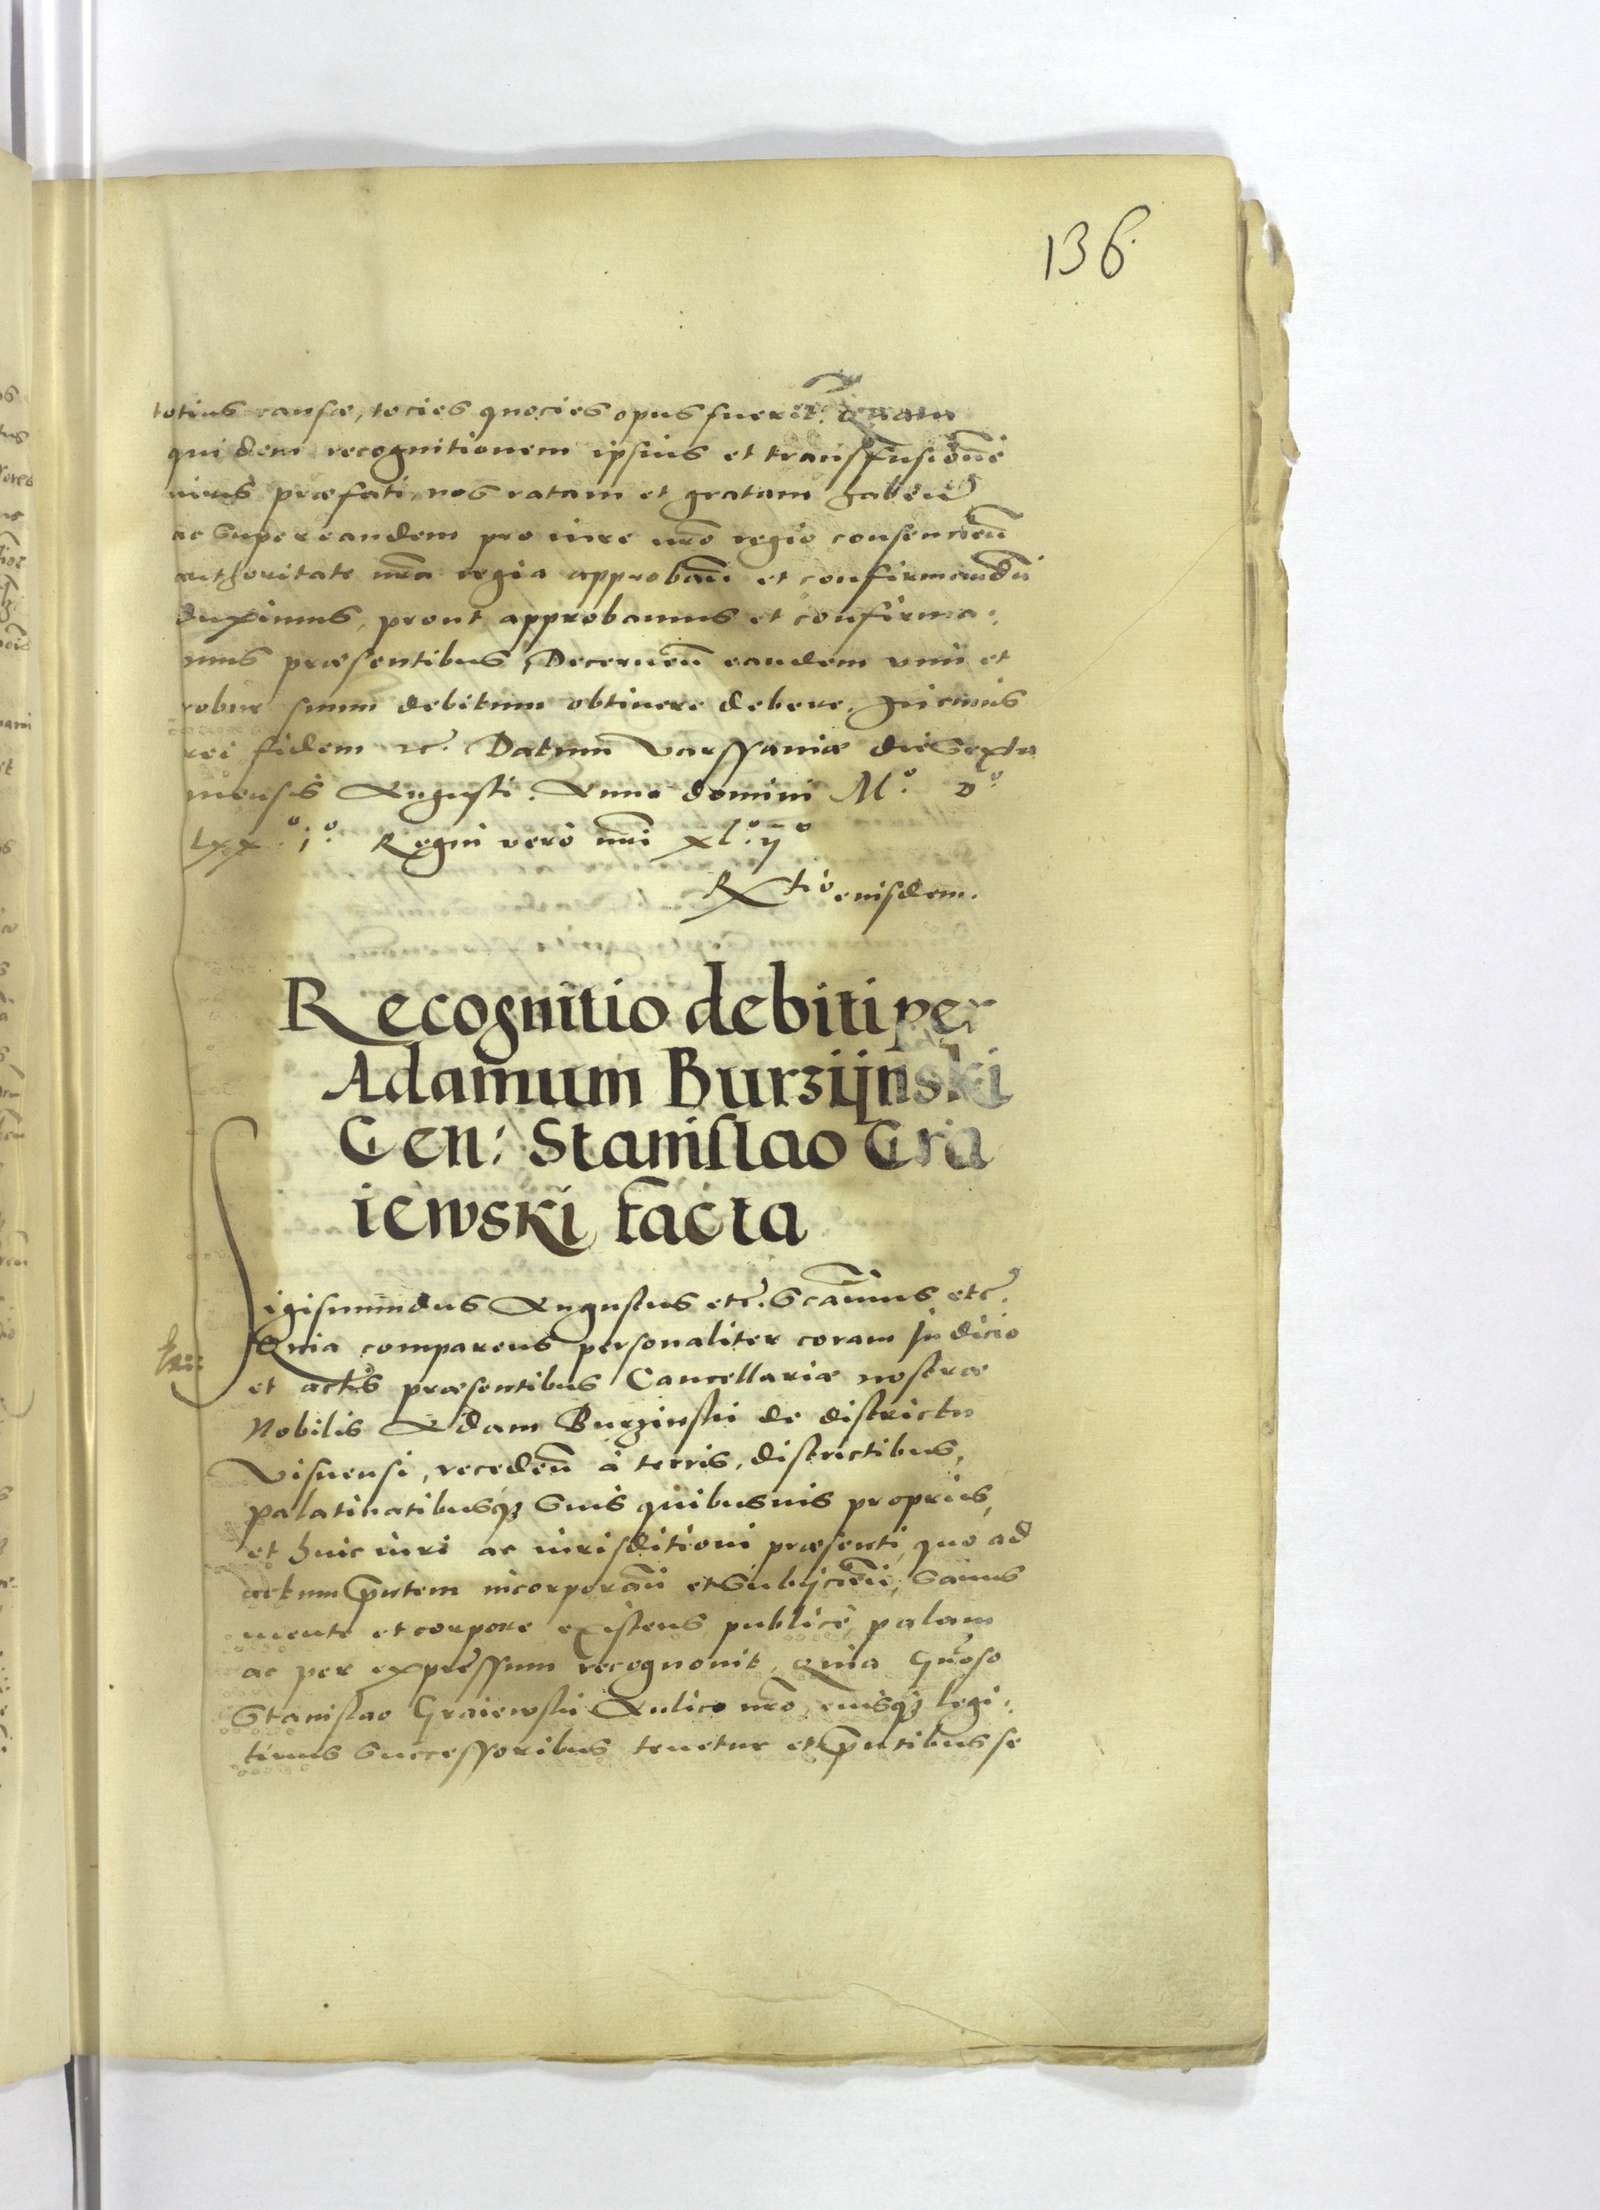 136
totius causæ, tocies quocies opus fuerit. Quam
quidem recognitionem ipsius et transfusionē
iuris præfati, nos ratam et gratam haben̄
ac super eandem pro iure nr̄o regio consencien̄
authoritate nr̄a regia approban̄ et confirmandū
duximus, prout approbamus et confirma:
mus præsentibus, Decernen̄ eandem vim et
robur suum debitum obtinere debere. In cuius
rei fidem etc. Datum Varssauiæ die sexta
mensis Augusti. Anno domini M.º D.º
Lxx.º i.º Regni vero nr̄i xl.º ij º
Rxtio eiusdem.
Recognitio debiti per
Adamum Burzijnski
Gen: Stanislao Gra
iewski facta
Sigismundus Augustus etc. Scamus etc.
Quia comparens personaliter coram Judicio
et actis præsentibus Cancellariæ nostræ
Nobilis Adam Burzinski de districtu
Visnensi, receden̄ à terris, districtibus,
palatinatibusq3 suis quibusuis proprijs,
et huic iuri ac iurisditioni præsenti, quo ad
actum pn̄tem incorporan̄ et subijcien̄, sanus
mente et corpore existens publicè, palam
ac per expressum recognouit, Quia Gn̄oso
Stanislao Graiewski Aulico nr̄o, eiusq3 legi:
timis successoribus tenetur et pn̄tibus se